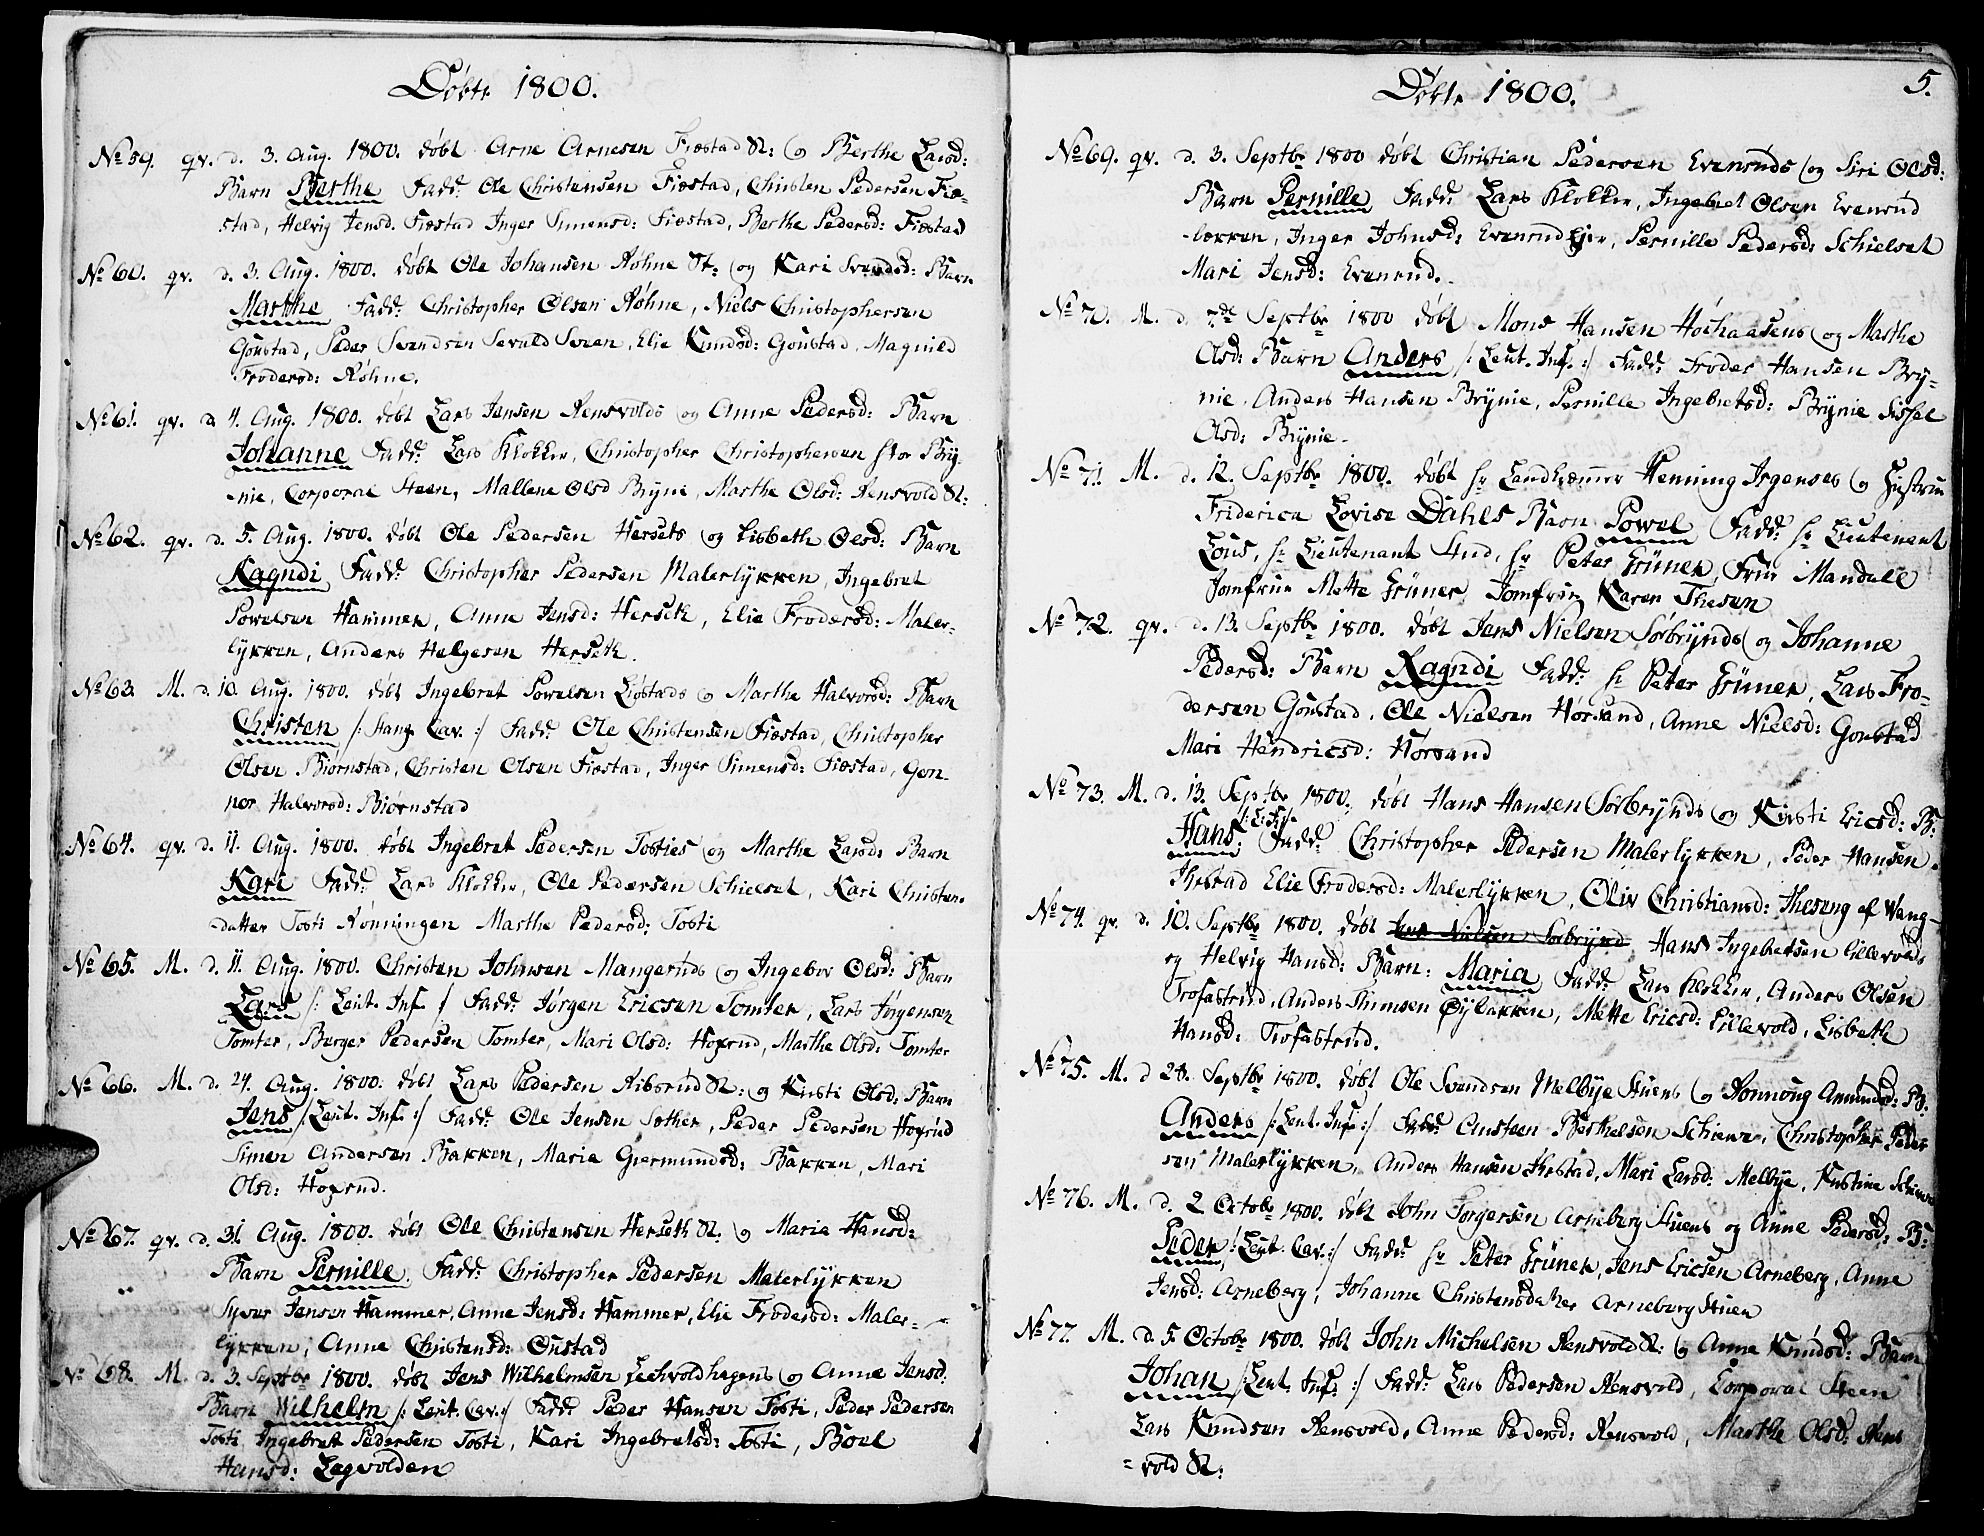 Døbte 1800.
No 59. qv. d. 3. Aug. 1800. døbt Arne Arnesen Fiæstad St: og Berthe Larsd:
Barn Berthe Fadd: Ole Christensen Fiæstad, Christen Pedersen Fiæ-
stad, Helvig Jensd. Fiæstad Inger Simensd: Fiæstad, Berthe Pedersd: Fiæstad
No 60. qv. d. 3. Aug. 1800. døbt Ole Johansen Røhne St: og Kari Svendsd: Barn
Marthe Fadd: Christopher Olsen Røhne, Niels Christophersen
Goustad, Peder Svendsen Sevald Sveen, Elie Knudsd: Goustad, Magnild
Frodersd: Røhne.
No 61. qv. d. 4. Aug. 1800. døbt Lars Jensen Rensvolds og Anne Pedersd: Barn
Johanne Fadd: Lars Klokker, Christopher Christophersen stor Bry-
nie, Corporal Steen, Mallene Olsd Brynie, Marthe Olsd: Rensvold St:
No 62. qv. d. 5. Aug. 1800. døbt Ole Pedersen Hersets og Lisbeth Olsd: Barn
Ragndi Fadd: Christopher Pedersen Malerlykken, Ingebret
Powelsen Hammer, Anne Jensd: Herseth, Elie Frodersd: Maler-
lykken, Anders Helgesen Herseth.
No 63. M. d. 10. Aug. 1800. døbt Ingebret Powelsen Liøstads og Marthe Halvorsd: Barn
Christen /: Stang Cav. :/ Fadd: Ole Christensen Fiæstad, Christopher
Olsen Biørnstad, Christen Olsen Fiæstad, Inger Simensd: Fiæstad, Gon-
nor Halvorsd: Biørnstad
No 64. qv. d. 11. Aug. 1800. døbt Ingebret Pedersen Tosties og Marthe Larsd: Barn
Kari Fadd: Lars Klokker, Ole Pedersen Schielset, Kari Christens-
datter Tosti Rønningen Marthe Pedersd: Tosti
No 65. M. d. 11. Aug. 1800. Christen Johnsen Mangeruds og Ingebor Olsd: Barn
Lars /: Leut. Inf. / Fadd: Jørgen Ericsen Tomter, Lars Jørgensen
Tomter, Burger Pedersen Tomter, Mari Olsd: Hoxrud, Marthe Olsd: Tomter
No 66. M. d. 24. Aug. 1800. døbt Lars Pedersen Ribsrud St: og Kirsti Olsd: Barn
Jens /: Leut. Inf. :/ Fadd: Ole Jensen Sother, Peder Pedersen Hoxrud
Simen Andersen Bakken, Marie Giermundsd: Bakken, Mari
Olsd: Hoxrud.
No 67. qv. d. 31. Aug. 1800. døbt Ole Christensen Herseth St. og Marie Hansd:
Barn Pernille. Fadd: Christopher Pedersen Malerlykken
Syver Jensen Hammer, Anne Jensd: Hammer, Elie Frodersd: Maler-
lykken, Anne Christensd: Oustad
No 68. M. d. 3. Septbr 1800. døbt Jens Wilhelmsen Lechvoldhagens og Anne Jensd.
Barn Wilhelm /: Leut. Cav. :/ Fadd: Peder Hansen Tosti, Peder Pedersen
Tosti Ingebret Pedersen Tosti, Kari Ingebretsd: Tosti, Boel
Hansd: Legvolden
5.
Døbte 1800.
No 69. qv. d. 3. Septbr 1800 døbt Christian Pedersen Evenruds og Siri Olsd:
Barn Pernille Fadd: Lars Klokker, Ingebret Olsen Evenrud
-bakken, Inger Johnsd: Evenrud Ejer, Pernille Pedersd: Schielset
Mari Jensd: Evenrud.
No 70. M. d. 7de Septbr 1800 døbt Mons Hansen Hoshaasens og Marthe
Olsd: Barn Anders /: Leut. Inf. :/ Fadd: Froder Hansen Bry-
nie, Anders Hansen Brynie, Pernille Ingebretsd: Brynie Sissel
Olsd: Brynie.
No 71. M. d. 12. Septbr 1800. døbt Hr Landkræmmer Henning Irgenses og Hustrue
Friderica Lovise Dahls Barn Powel Fadd: Hr Lieutenant
Lous, Hr Lieutenant Lund, Hr Peter Grüner, Frue Mandall
Jomfrue Mette Grüner, Jomfrue Karen Thesen
No 72. qv. d. 13. Septbr 1800. døbt Jens Nielsen Sørbrynds og Johanne
Pedersd: Barn Ragndi Fadd: Hr Peter Grüner, Lars Fro-
dersen Goustad, Ole Nielsen Horsand, Anne Nielsd: Goustad
Mari Hendricsd: Horsand
No 73. M. d. 13. Septbr 1800. døbt Hans Hansen Sørbrynds og Kirsti Ericsd: B:
Hans: Fadd: Christopher Pedersen Malerlykken, Peder Hansen
Thestad Elie Frodersd: Malerlykken, Oliv Christiansd: Theseng af Wang-
No 74. qv. d. 10. Septbr 1800. døbt Jens Nielsen Sørbrynd Hans Ingebretsen Lillevolds
og Helvig Hansd: Barn: Maria Fadd: Lars Klokker, Anders Olsen
Trofastrud, Anders Thomsen Øybakken, Mette Ericsd: Lillevold, Lisbeth
Hansd: Trofastrud.
No 75. M. d 28. Septbr 1800. døbt Ole Svendsen Melbye Stuens og Ronnoug Amundsd: B:
Anders /: Leut. Inf. :/ Fadd: Amsteen Berthelsen Schiewe, Christopher Peder
sen Malerlykken, Anders Hansen Thestad, Mari Larsd: Melbye, Kirstine Schiewe
No 76. M. d. 2 Octobr 1800. døbt John Torgersen Arneberg Stuens og Anne Pedersd: B:
Peder /: Leut. Cav. :/ Fadd: Hr Peter Grüner, Jens Ericsen Arneberg, Anne
Jensd: Arneberg, Johanne Christensdatter Arneberg Stuen
No 77. M. d. 5. Octobr 1800. døbt John Michelsen Rensvold St: og Anne Knudsd: Barn
Johan /: Leut. Inf. :/ Fadd: Lars Pedersen Rensvold, Corporal Steen
Lars Knudsen Rensvold, Anne Pedersd: Rensvold, Marthe Olsd: Rens
-vold St: